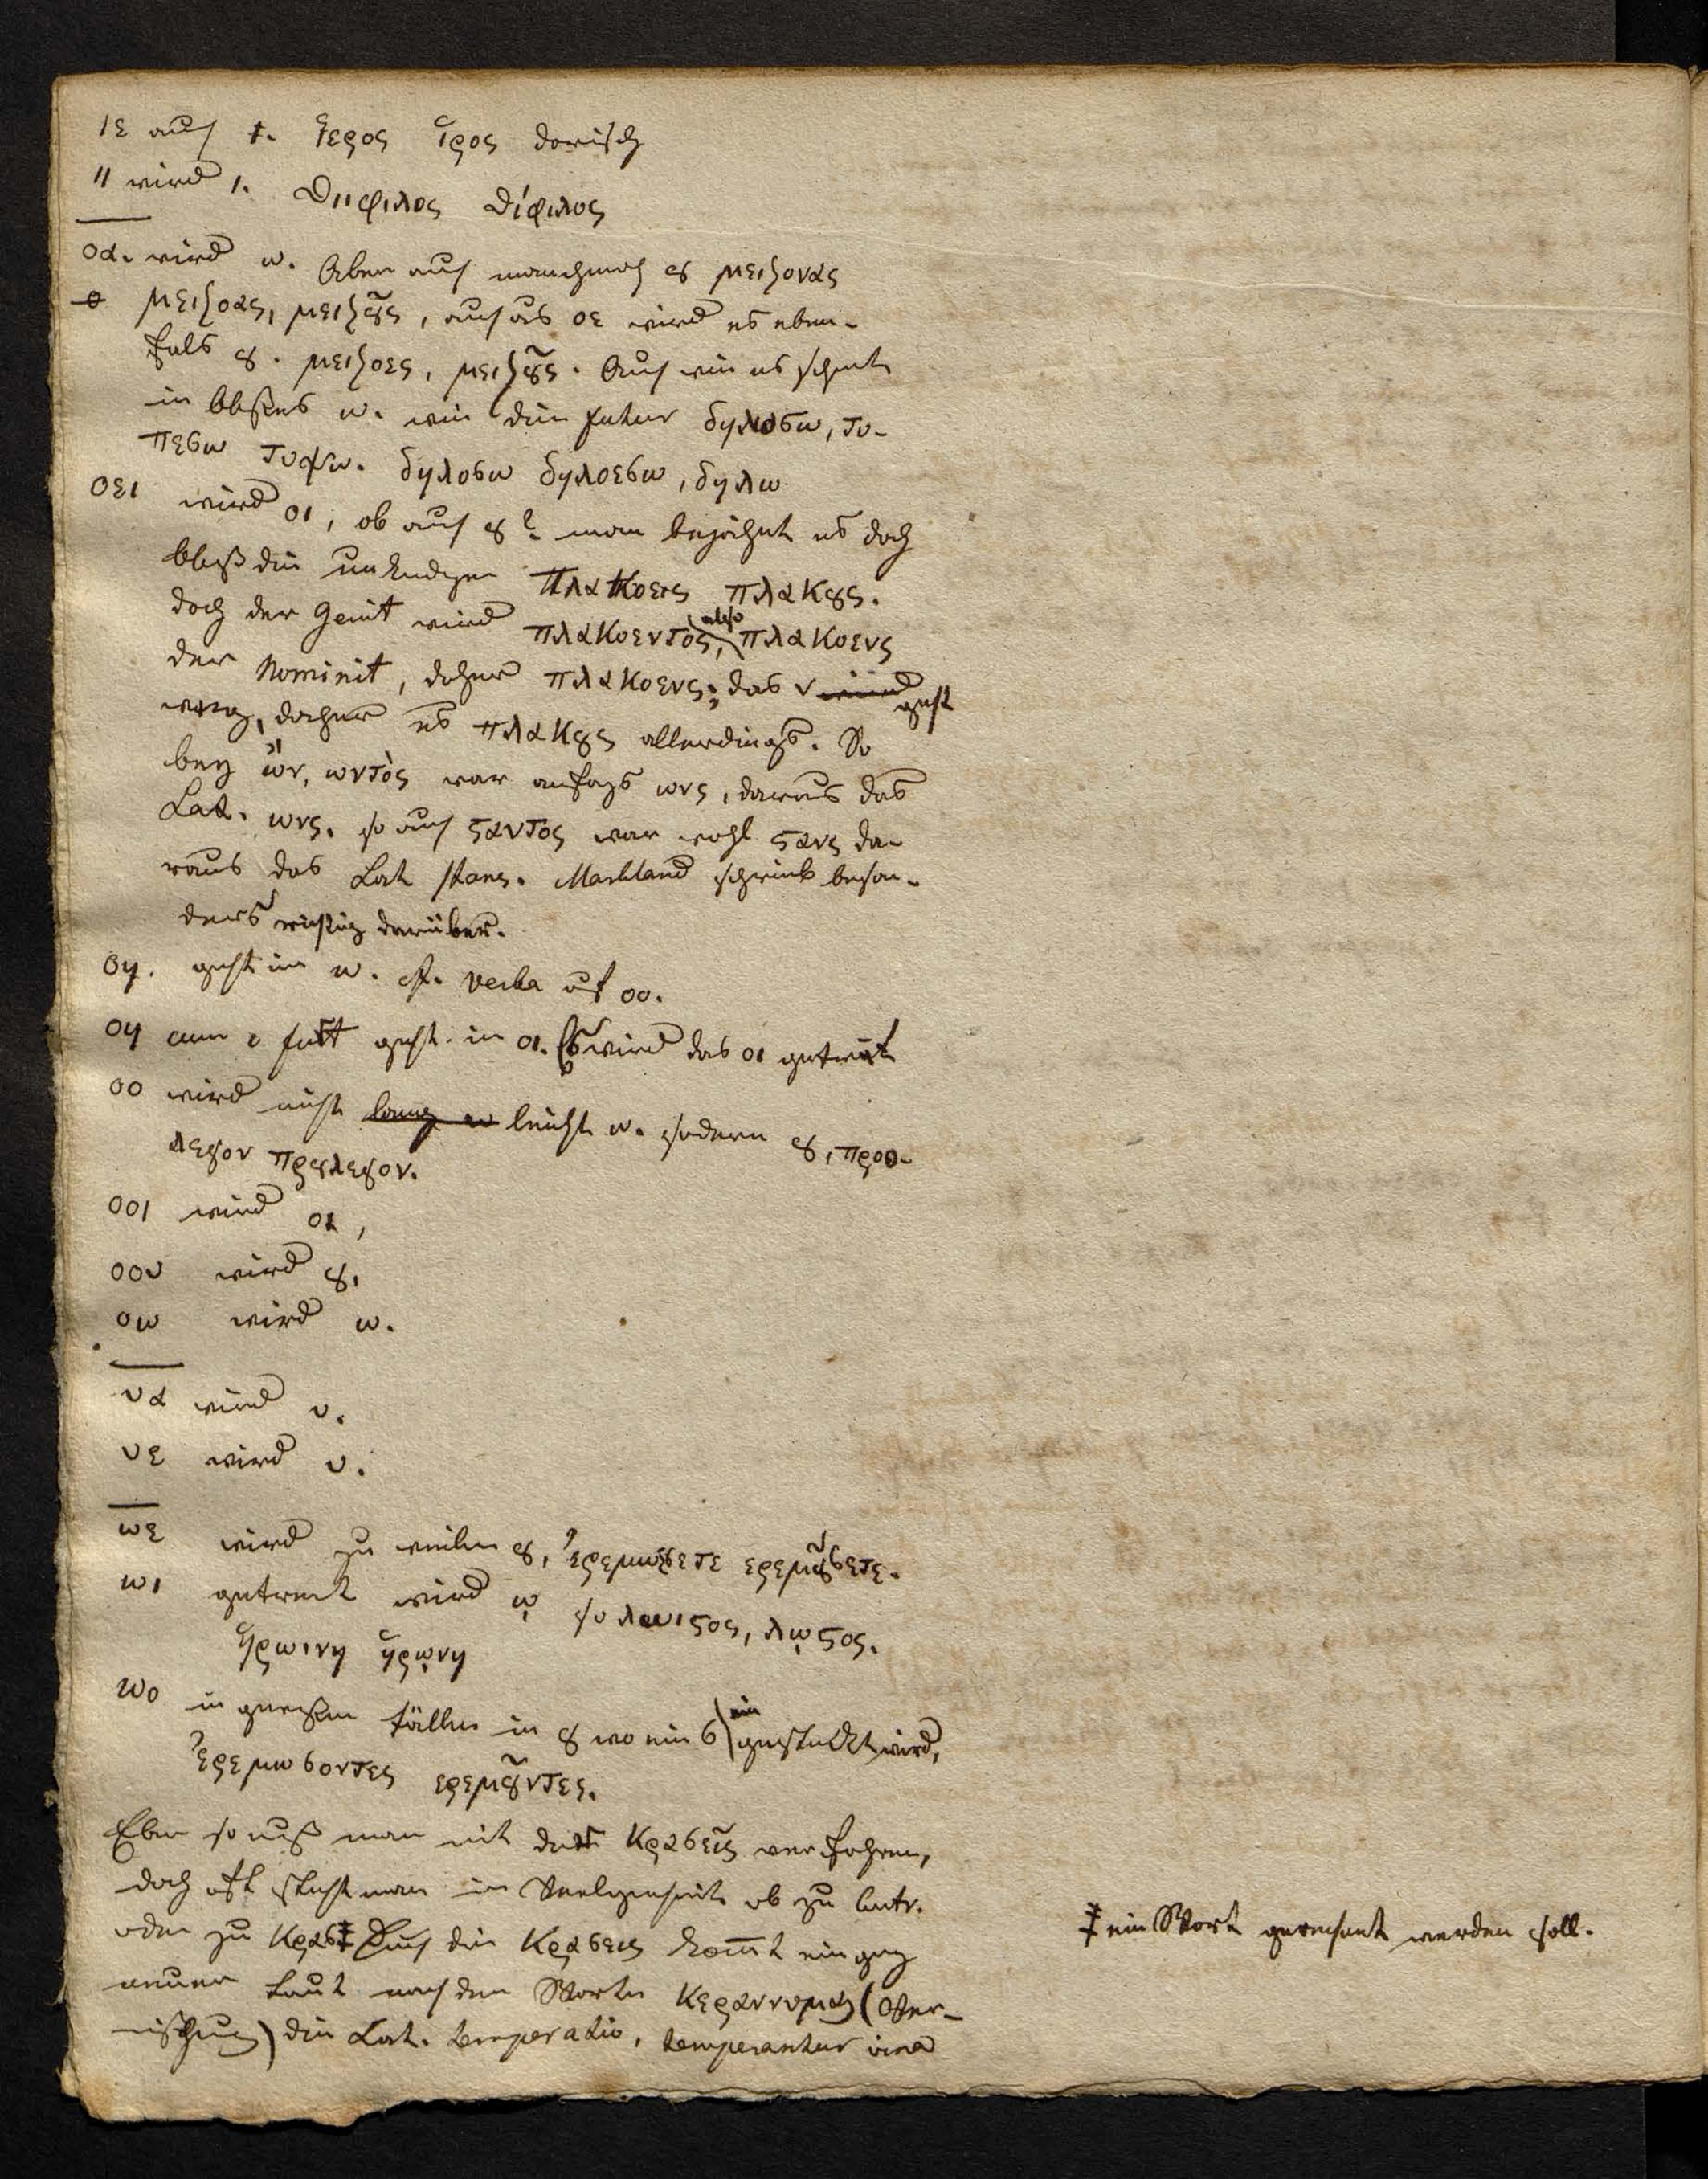 ιε auch ι. ἵερος ἵρος dorisch
ιι wird ι. Διιφιλος Δίφιλος
οα. wird ω. Aber auch manchmal ȣ μειζονας
μειζοας, μειζȣ͂ς, auch aus οε wird es eben-
fals ȣ. μειζοες, μειζȣ͂ς. Auch wie es scheint
in bloßes ω. wie die futur δηλωσω, τυ-
πεσω τυψω. δηλοσω δηλοεσω, δηλω
οει wird οι, ob auch ȣ? man bejahet es doch
bloß die πλακοεις πλακȣς.
doch der Genit wird πλακοεντὸς, also πλακοενς
der Nominit, daher πλακοενς; das ν wird geht
weg, daher es πλακȣς allerdings. So
bey ὤν, ωντὸς war anfags ωνς, daraus das
Lat. ωνς. so auch ϛαντος war wohl ϛανς da-
raus das Lat stans. Markland schrieb beson-
ders wichtig darüber.
οη. geht in ω. cf. verba auf οο.
οη geht in οι. So wird das οι getrent
οο wird nicht lang ω leicht ω. sodern ȣ, προε-
λεγον πρȣλεγον.
οοι wird οι,
οου wird ȣ,
οω wird ω.
υα wird υ.
υε wird υ.
ωε wird zu weilen ȣ, ἐρεμωσετε ερεμȣ͂σετε.
ωι getrent wird ῳ so λωιϛος, λῳϛος.
ἡρωινη ἡρῳνη
ωο in gewißen fällen in ȣ wo ein σ eingestückt wird,
ἐρεμωσοντες ερεμȣ͂ντες.
Eben so muß man mit den κρασεῖς verfahren,
doch oft steht man in Verlegenheit ob zu
oder zu κρασ ‡ Durch die κρασεις kom̄t ein ganz
neuer Laut nach dem Worte κεραννυμαι (Ver-
mischung) die Lat. temperatio, temperantur vina
‡ ein Wort gerechnet werden soll.